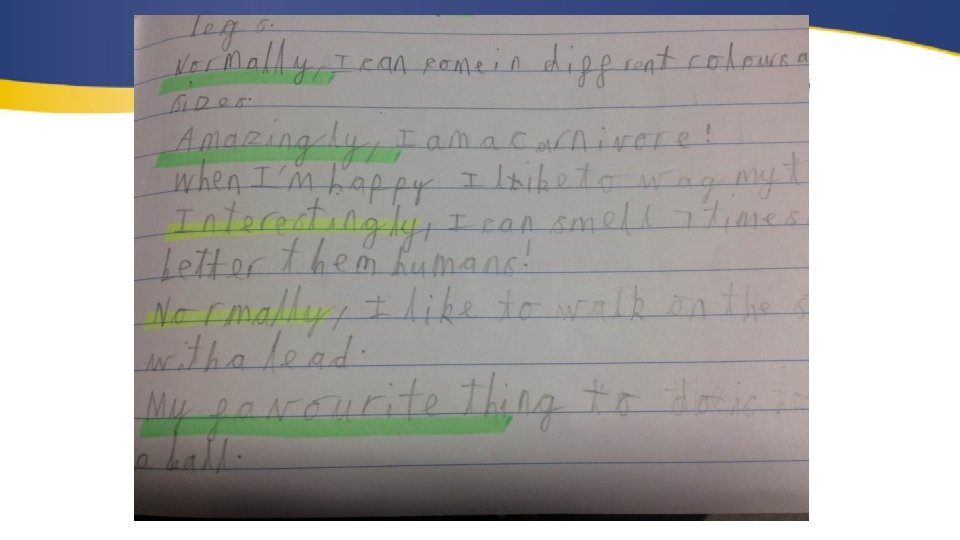 legs.
Normally, I can come in diffrent colours a
sizes.
Amazingly, I am a carnivore!
When I'm happy I like to wag my t
Interestingly, I can smell 7 times
better them humans!
Normally, I like to walk on the s
with a lead.
My favourite thing to do is to
a ball.